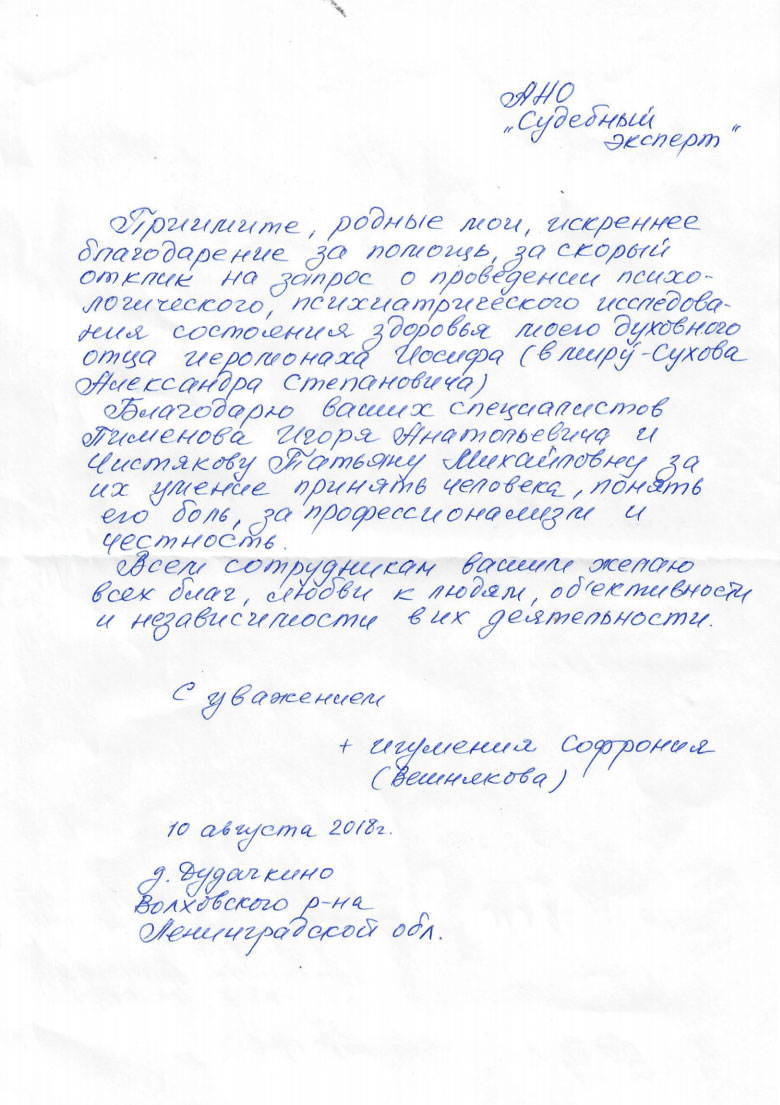 АНО
„Судебный
эксперт"
Приимите, родные мои, искреннее
благодарение за помощь, за скорый
отклик на запрос о проведении психо-
логического, психиатрического исследова-
ния состояния здоровья моего духовного
отца иеромонаха Иосифа (в миру-Сухова
Александра Степановича)
Благодарю ваших специалистов
Пименова Игоря Анатольевича и
Чистякову Татьяну Михайловну за
их умение принять человека, понять
его боль, за профессионализм и
честность.
Всем сотрудникам вашим желаю
всех благ, любви к людям, об'ективности
и независимости в их деятельности.
С уважением
+ игумения Софрония
(Вешнякова)
10 августа 2018г.
д. Дудачкино
Волховского р-на
Ленинградской обл.